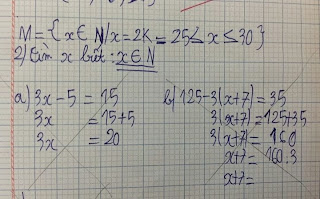 M = { x ∈ N / x = 2K = 25 ≤ x ≤ 30 }
2) Tìm x biết : x ∈ N
a) 3x - 5 = 15
3x = 15 + 5
3x = 20
b) 125 - 3(x+7) = 35
3(x+7) = 125+35
3(x+7) = 160
x+7 = 160.3
x+7 =